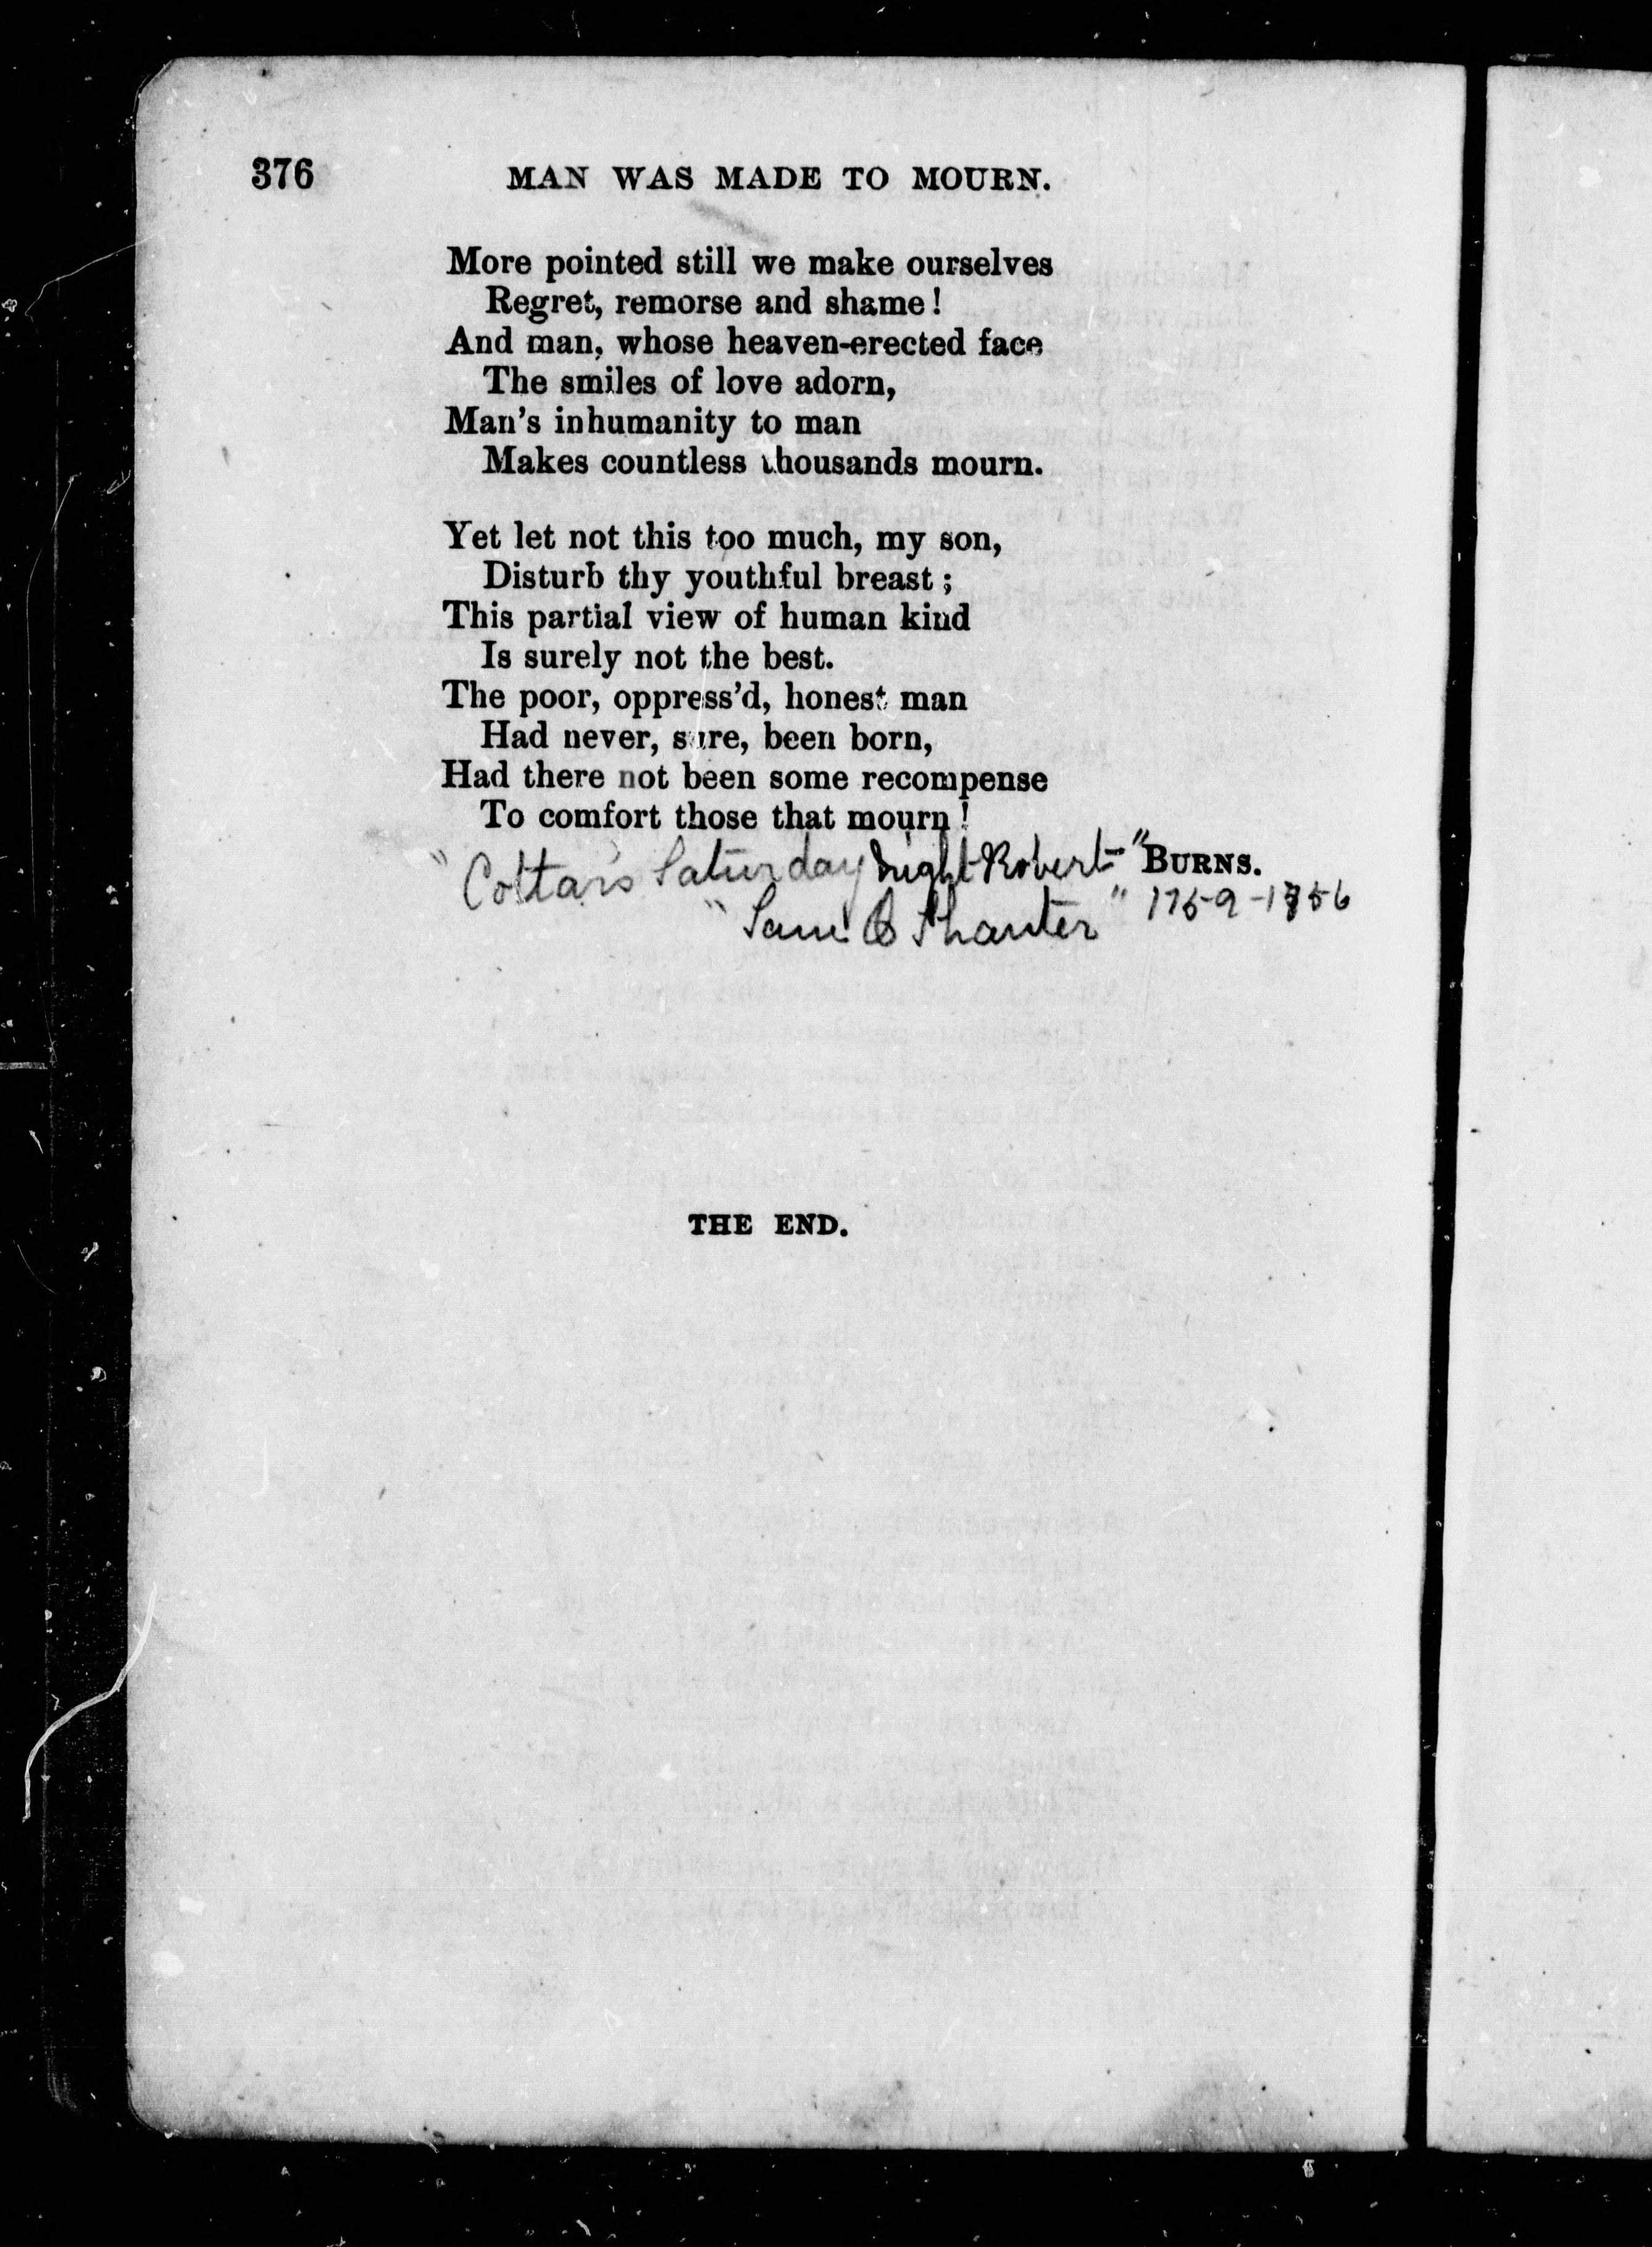 376 MAN WAS MADE TO MOURN.
More pointed still we make ourselves
Regret, remorse and shame!
And man, whose heaven-erected face
The smiles of love adorn,
Man's inhumanity to man
Makes countless thousands mourn.
Yet let not this too much, my son,
Disturb thy youthful breast;
This partial view of human kind
Is surely not the best.
The poor, oppress'd, honest man
Had never, sure, been born,
Had there not been some recompense
To comfort those that mourn!
"Cottar's Saturday Night Robert" BURNS.
"Tam O Shanter" 1759-1856
THE END.